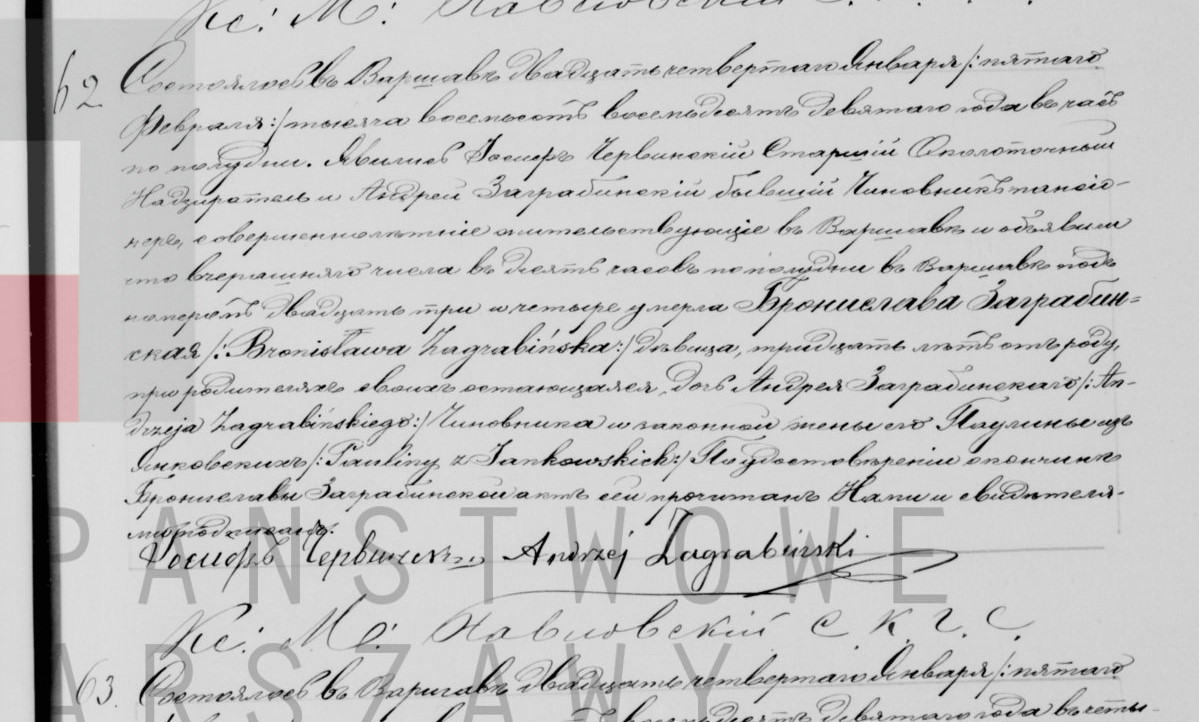 Кс: М: Павловскій С.
62 Состоялось въ Варшавѣ двадцать четвертаго Января /: пятаго
Февраля :/ тысяча восемьсотъ восемьдесятъ девятаго года въ часъ
по полудни. Явились Іосифъ Червинскій Старшій Околоточный
Надзиратель и Андрей Заграбинскій бывшій Чиновникъ пансіо-
неръ, совершеннолѣтніе жительствующіе въ Варшавѣ и объявили
что вчерашняго числа въ десять часовъ по полудни въ Варшавѣ подъ
номеромъ двадцать три и четыре умерла Брониславa Заграбин=
ская /: Bronisława Zagrabińska :/ дѣвица, тридцать лѣтъ отъ роду,
при родителяхъ своихъ остающаяся, дочь Андрея Заграбинскаго /: An-
drzeja Zagrabińskiego :/ Чиновника и законной жены его Паулины изъ
Янковскихъ /: Pauliny z Jankowskich :/ По удостовѣреніи о кончинѣ
Брониславы Заграбинской актъ сей прочитанъ Нами и свидѣтеля-
ми подписанъ.
Іосифъ Червинскій Andrzej Zagrabiński
PAŃSTWOWE
Кс: М: Павловскій С. К. Г. С.
ARSZAWY
63. Состоялось въ Варшавѣ двадцать четвертаго Января /: пятаго
девятаго года въ четы-